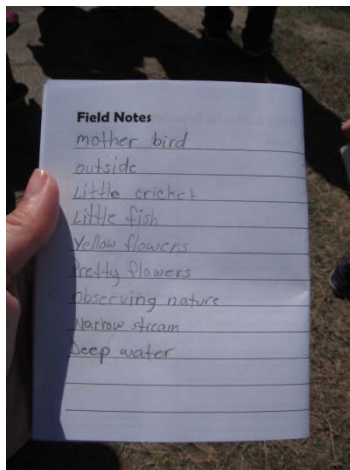 Field Notes
mother bird
outside
Little cricket
Little fish
Yellow flowers
Pretty flowers
observing nature
Narrow stream
Deep water